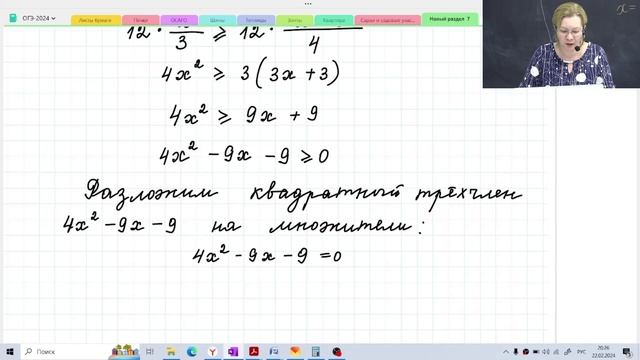 ОГЭ-2024
Листы бумаги
Печки
ОСАГО
Шины
Теплицы
Зонты
Квартира
Новый раздел 7
x =
12 · 3 ⩾ 12 · 4
4x² ⩾ 3(3x + 3)
4x² ⩾ 9x + 9
4x² - 9x - 9 ⩾ 0
Разложим квадратный трёхчлен
4x² - 9x - 9 на множители:
4x² - 9x - 9 = 0
Поиск
РУС
20:26
22.02.2024